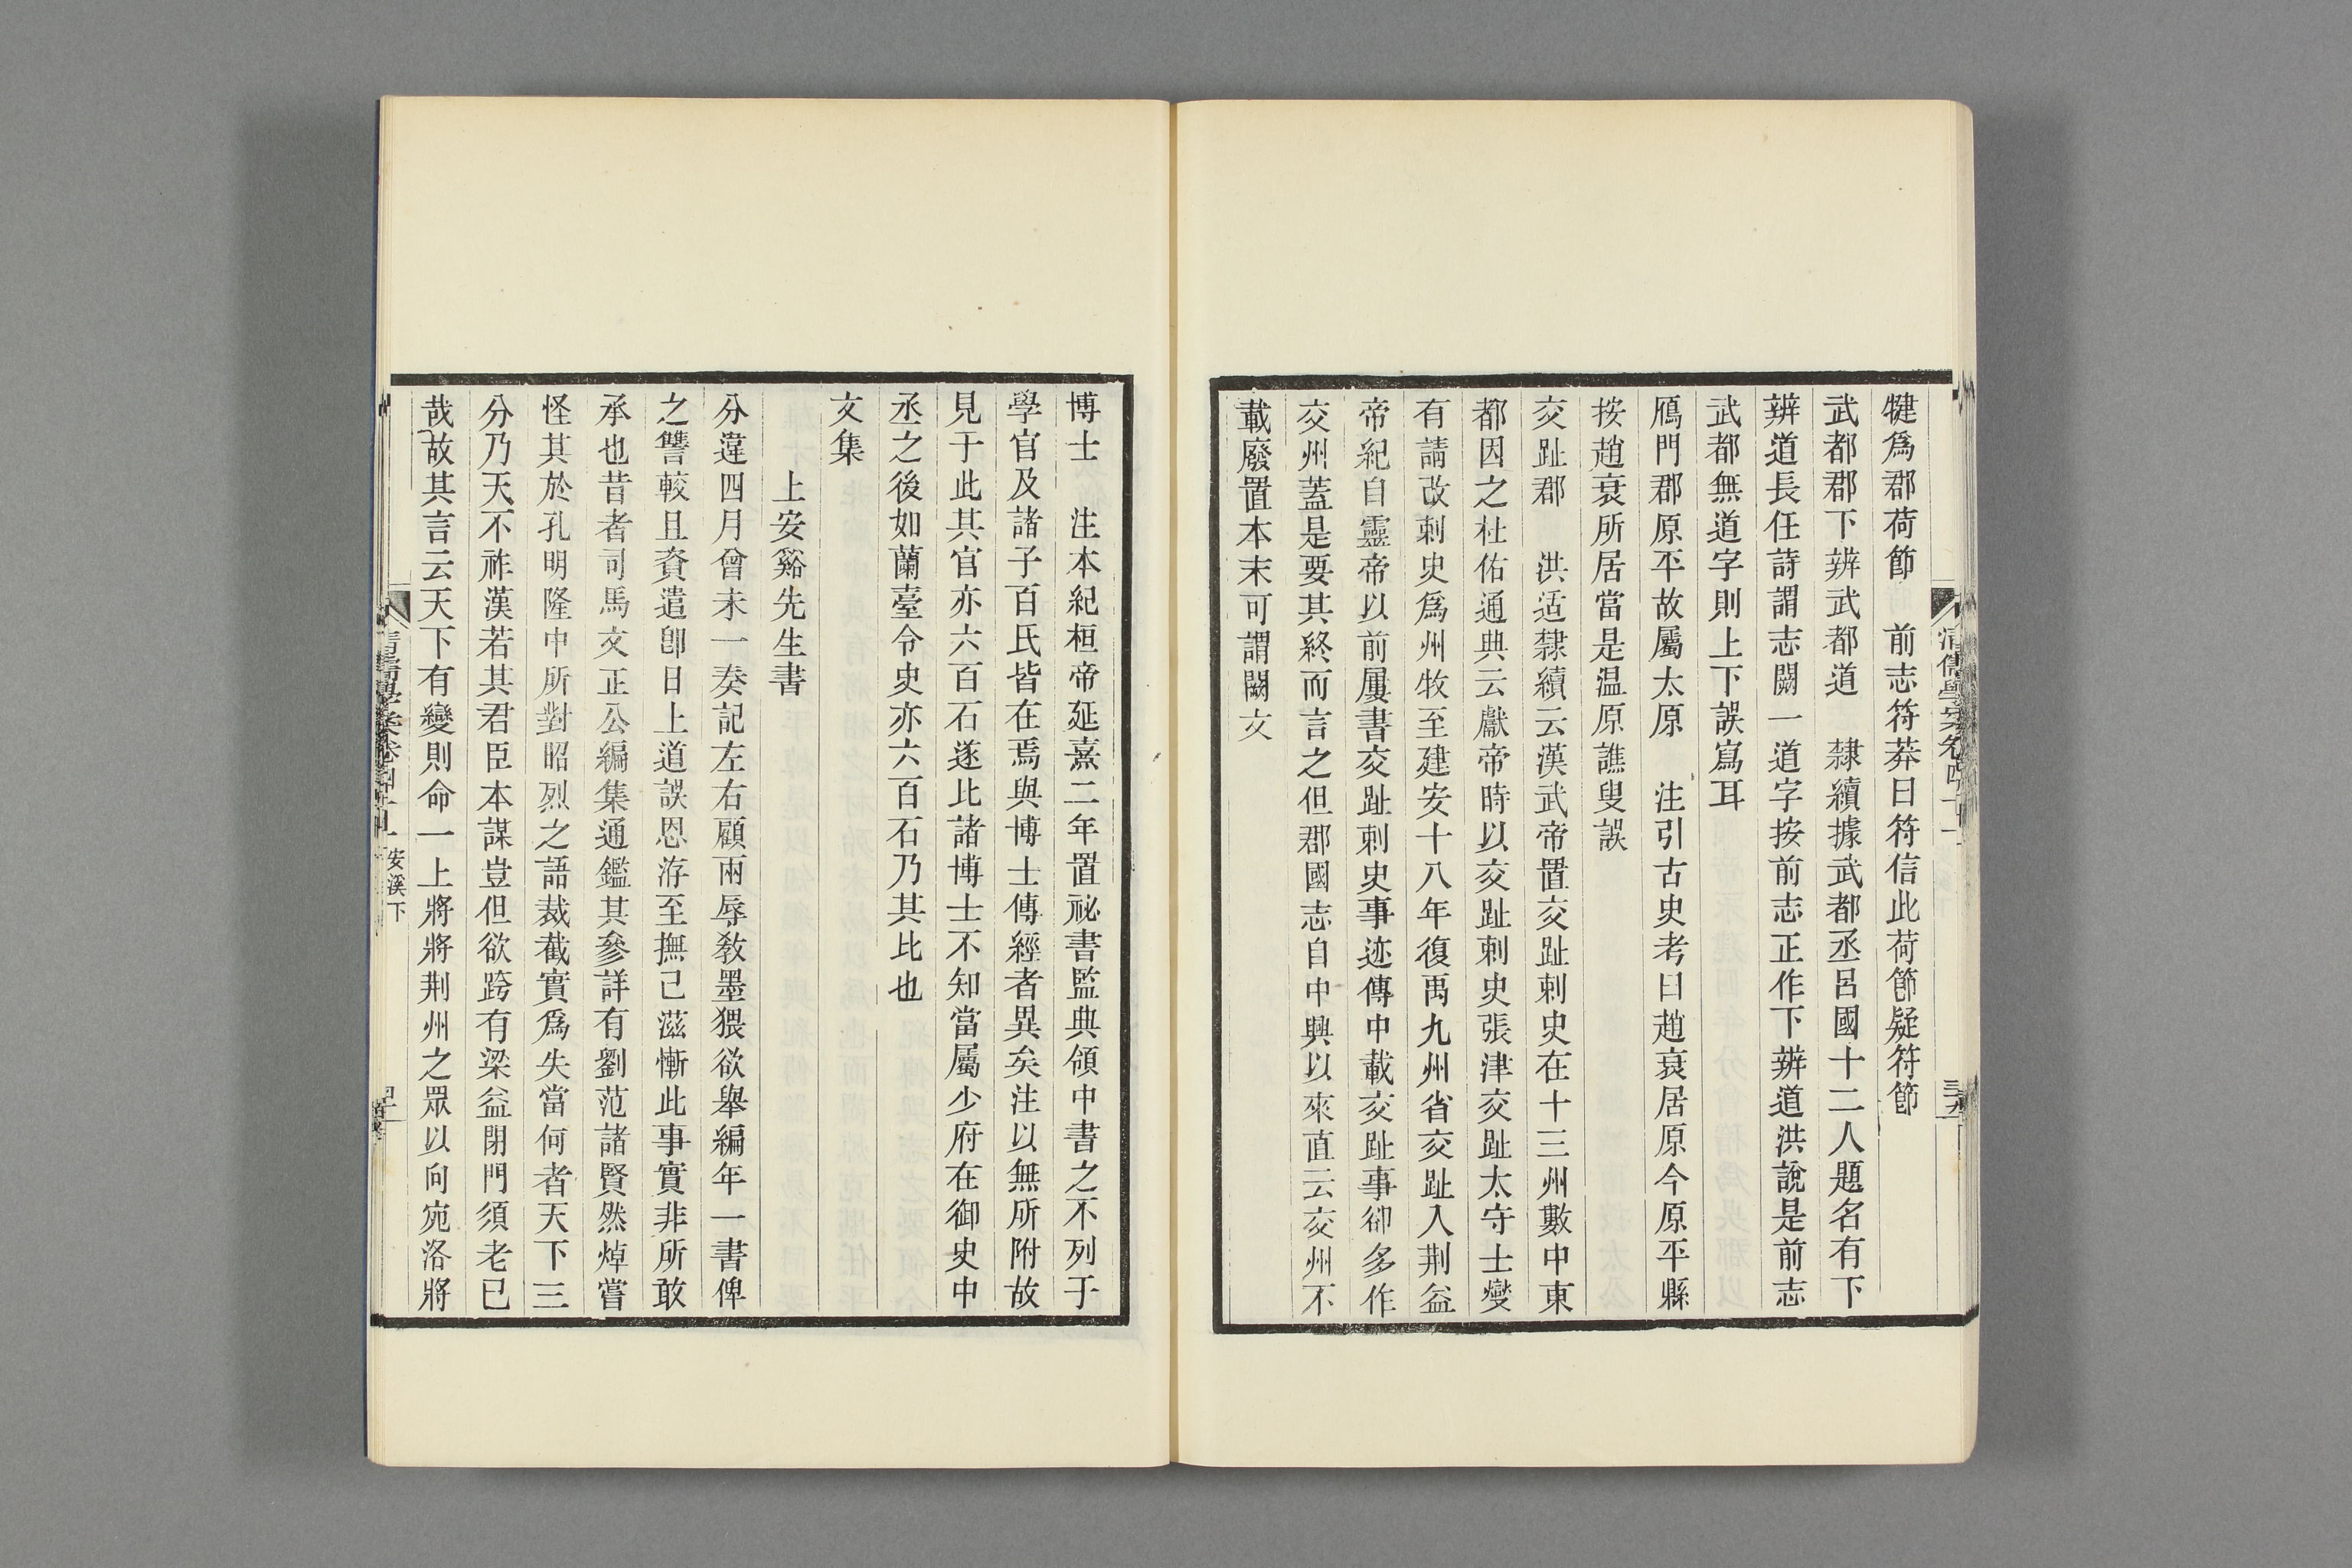 犍爲郡荷節　前志符莽曰符信此荷節疑符節
武都郡下辨武都道　隸續據武都丞呂國十二人題名有下
辨道長任詩謂志闕一道字按前志正作下辨道洪說是前志
武都無道字則上下誤寫耳
鴈門郡原平故屬太原　注引古史考曰趙衰居原今原平縣
按趙衰所居當是温原譙叟誤
交趾郡　洪适隸續云漢武帝置交趾刺史在十三州數中東
都因之杜佑通典云獻帝時以交趾刺史張津交趾太守士燮
有請改刺史爲州牧至建安十八年復禹九州省交趾入荆益
帝紀自靈帝以前屢書交趾刺史事迹傳中載交趾事卻多作
交州蓋是要其終而言之但郡國志自中興以來直云交州不
載廢置本末可謂闕文
清儒學案卷四十一
三九
博士　注本紀桓帝延熹二年置祕書監典領中書之不列于
學官及諸子百氏皆在焉與博士傳經者異矣注以無所附故
見于此其官亦六百石遂比諸博士不知當屬少府在御史中
丞之後如蘭臺令史亦六百石乃其比也
文集
上安谿先生書
分違四月曾未一奏記左右顧兩辱敎墨猥欲舉編年一書俾
之讐較且資遣卽日上道誤恩洊至撫己滋慚此事實非所敢
承也昔者司馬文正公編集通鑑其參詳有劉范諸賢然焯嘗
怪其於孔明隆中所對昭烈之語裁截實爲失當何者天下三
分乃天不祚漢若其君臣本謀豈但欲跨有梁益閉門須老已
哉故其言云天下有變則命一上將將荆州之眾以向宛洛將
清儒學案卷四十一　安溪下